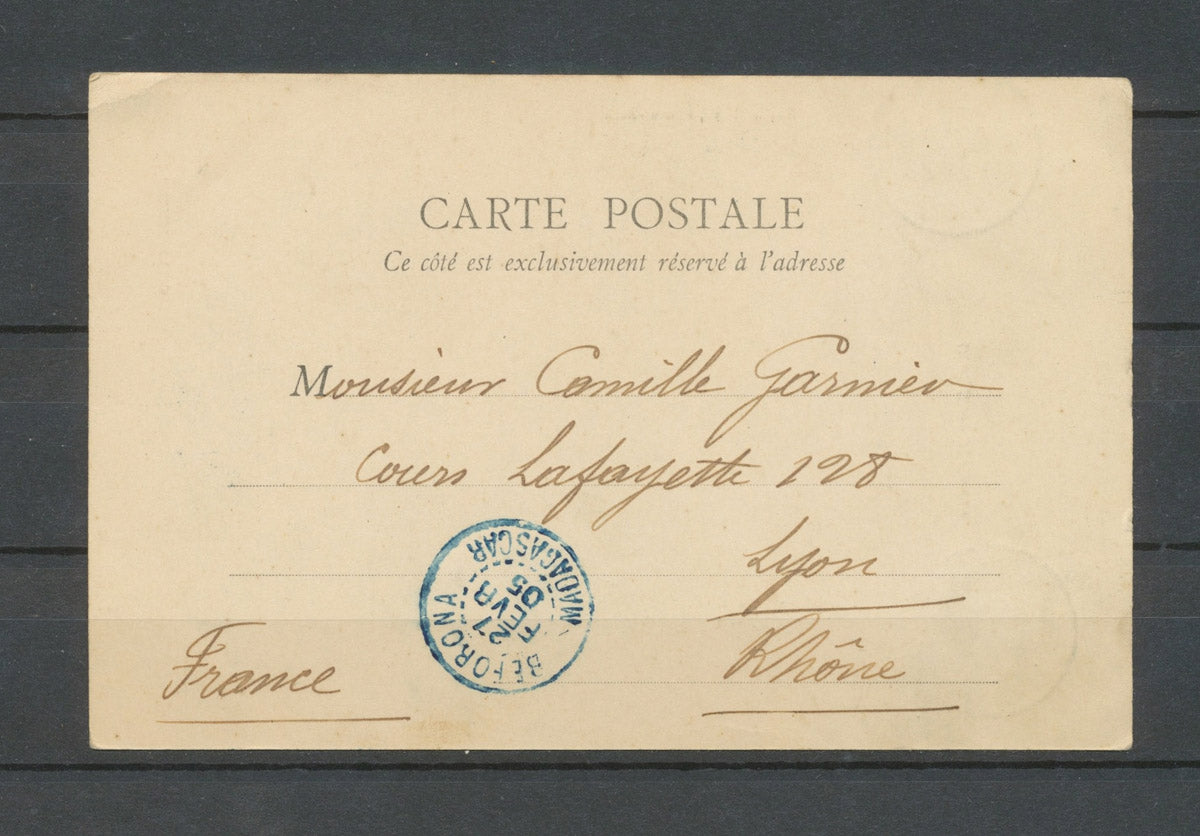 CARTE POSTALE
Ce côté est exclusivement réservé à l'adresse
Monsieur Camille Garnier
Cours Lafayette 128
Lyon
Rhône
France
BEFORONA
21
FEVR
05
MADAGASCAR